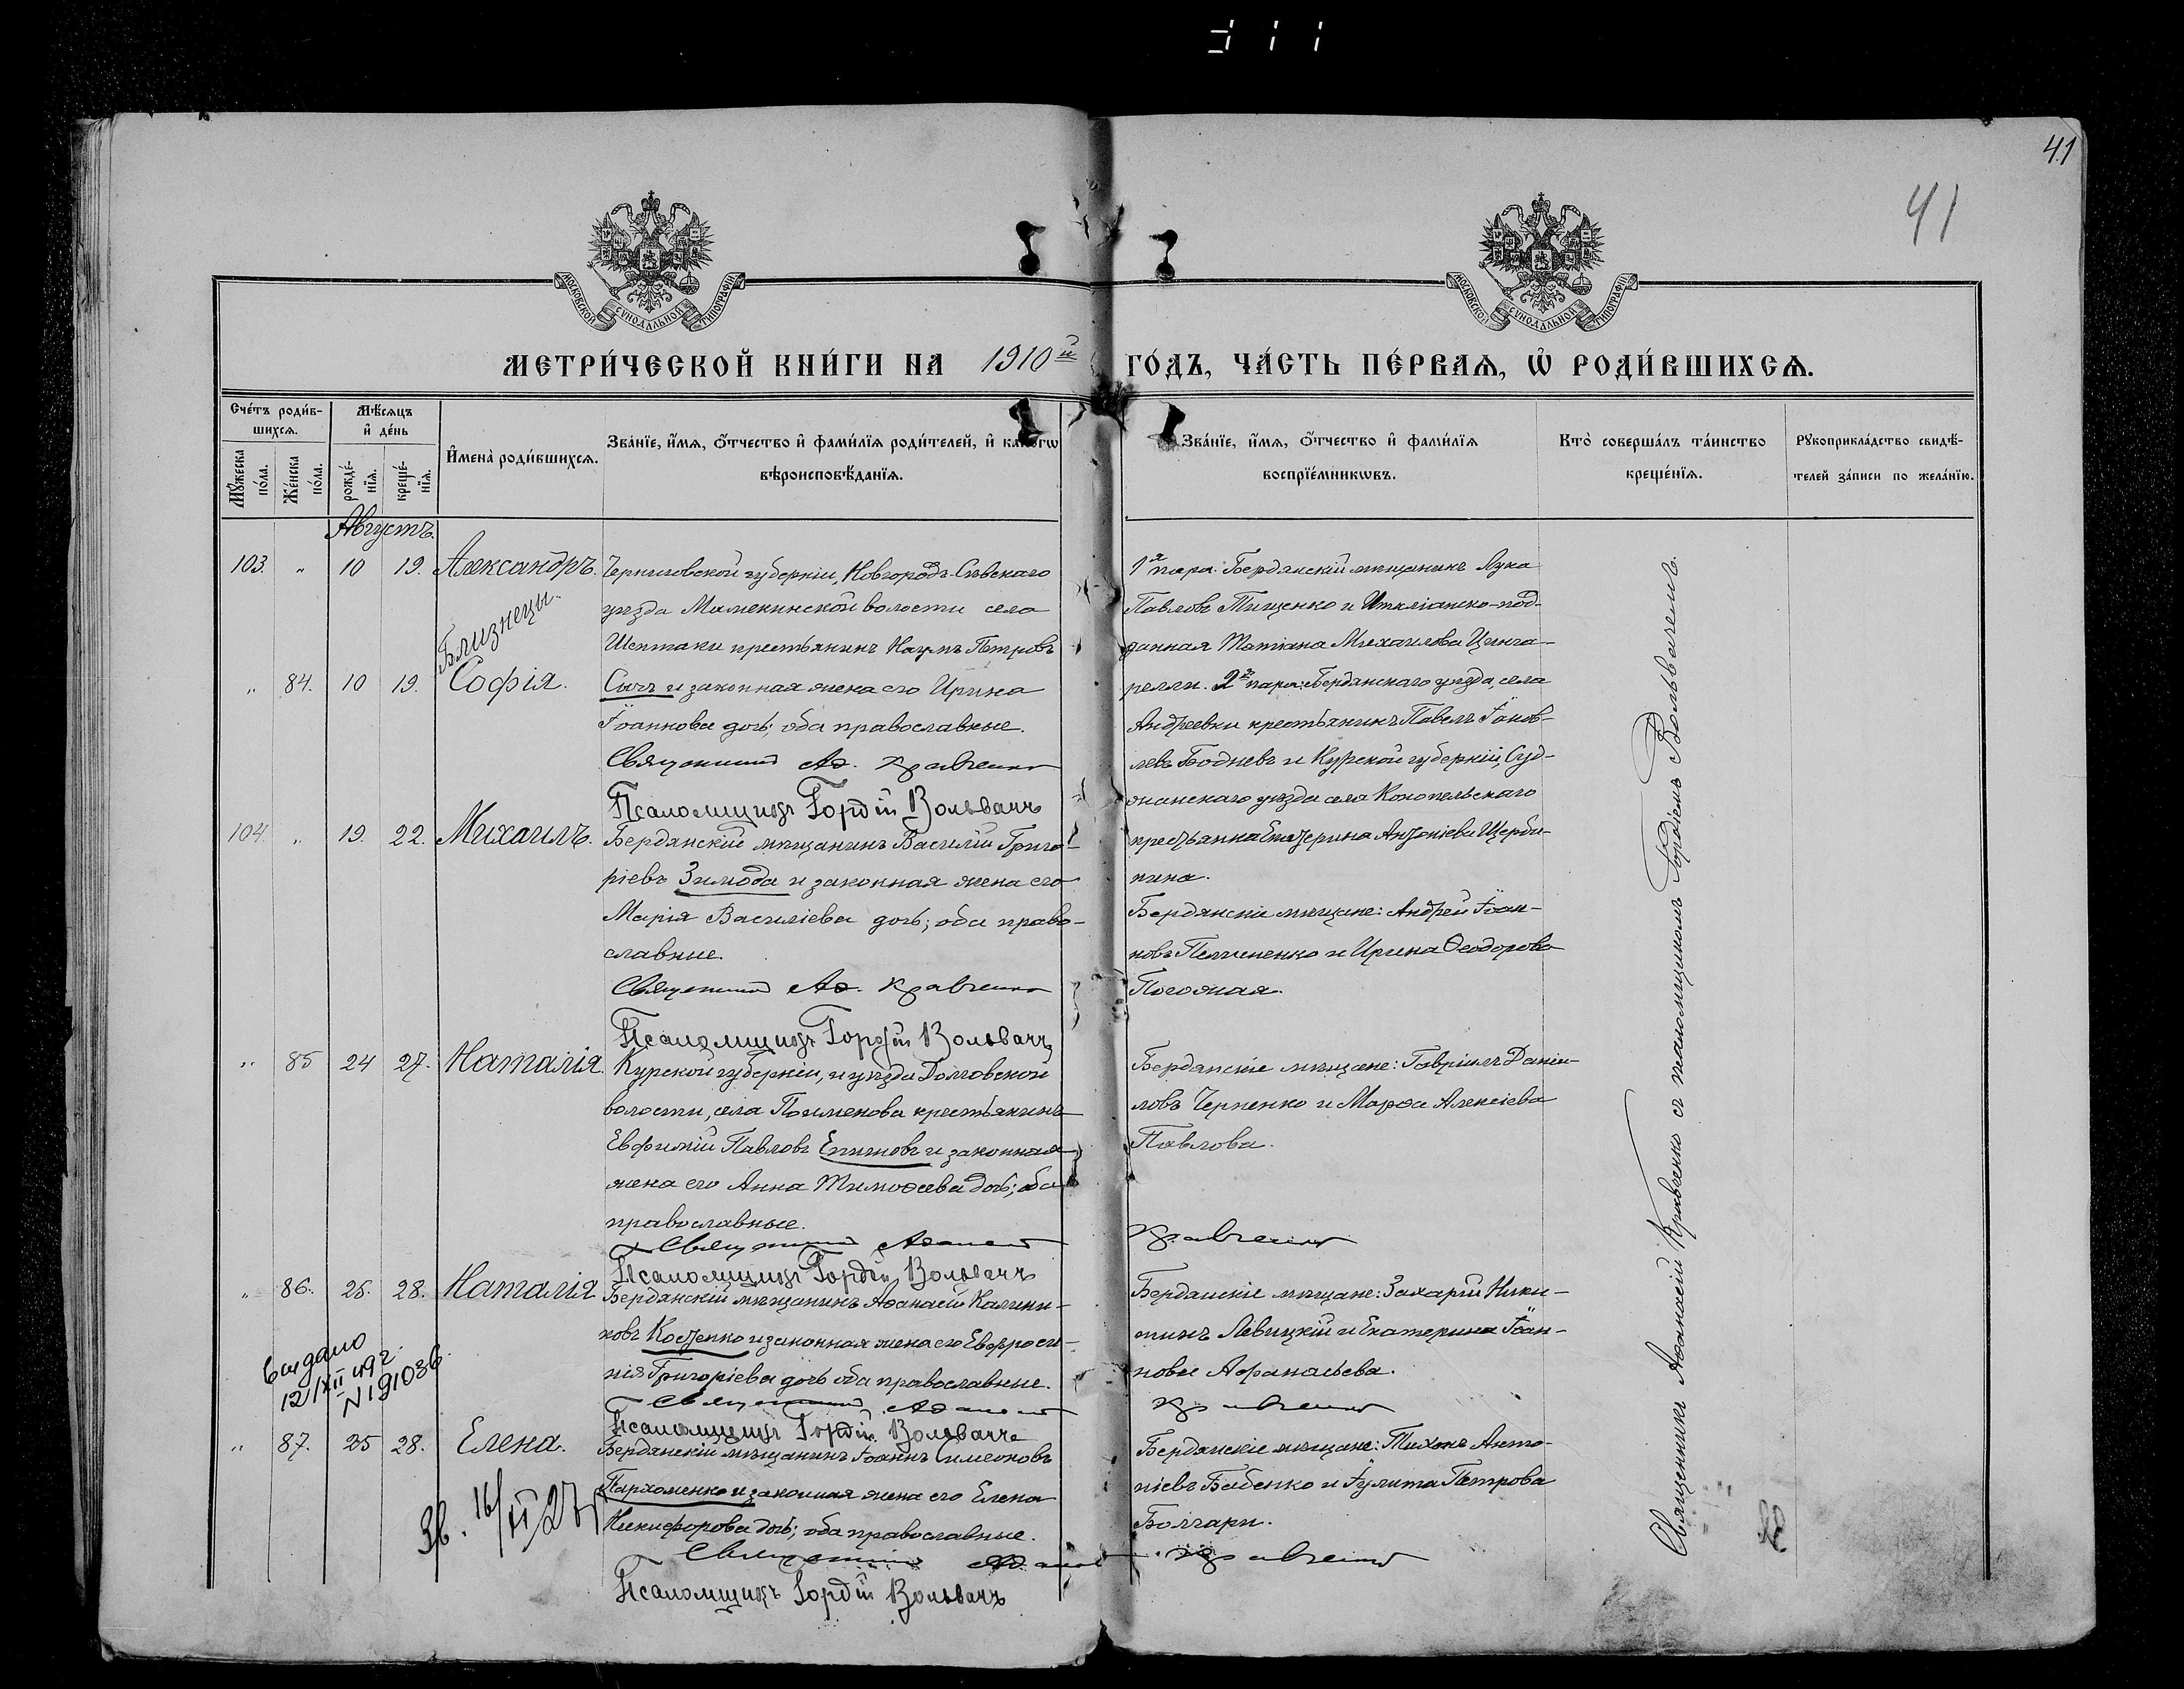 311
41
41
МОСКОВСКОЙ СѴНОДАЛЬНОЙ ТИПОГРАФІИ
МОСКОВСКОЙ СѴНОДАЛЬНОЙ ТИПОГРАФІИ
МЕТРИ́ЧЕСКОЙ КНИ́ГИ НА 1910й ГО́ДЪ, ЧА́СТЬ ПЕ́РВАѦ, Ѡ҆ РОДИ́ВШИХСѦ.
Сче́тъ роди́в-
шихсѧ.
Мꙋ́жеска по́ла.
Же́нска по́ла.
Мѣ́сѧцъ и҆ де́нь
рожде́-нїѧ.
креще́-нїѧ.
И҆мена̀ роди́вшихсѧ.
Зва́нїе, и҆́мѧ, ѻ҆́тчество и҆ фами́лїѧ роди́телей, и҆ како́гѡ
вѣроисповѣ́данїѧ.
Зва́нїе, и҆́мѧ, ѻ҆́тчество и҆ фами́лїѧ
воспрїе́мникѡвъ.
Кто̀ соверша́лъ та́инство
креще́нїѧ.
Рꙋкоприкла́дство свидѣ́-
телей за́писи по жела́нїю.
Августъ.
103. „ 10 19. Александръ.
Близнецы.
„ 84. 10 19. Софія.
Черниговской губерніи, Новгородъ-Сѣверскаго
уѣзда Мамекинской волости села
Шептаки крестьянинъ Наумъ Петровъ
Сычъ и законная жена его Ирина
Іоаннова дочь; оба православные.
Священникъ Аѳ. Кравченко
Псаломщикъ Гордій Вольвачъ
1я пара: Бердянскій мѣщанинъ Лука
Павловъ Тищенко и Италіанско-под-
данная Татіана Михаилова Цинга-
релли. 2я пара: Бердянскаго уѣзда, села
Андреевки крестьянинъ Павелъ Іаков-
левъ Бодневъ и Курской губерніи, Суд-
жанскаго уѣзда села Конопельскаго
крестьянка Екатерина Антоніева Щерби-
нина.
104. „ 19. 22. Михаилъ.
Бердянскій мѣщанинъ Василій Григо-
ріевъ Зимода и законная жена его
Марія Василіева дочь; оба право-
славные.
Священникъ Аѳ. Кравченко
Псаломщикъ Гордій Вольвачъ
Бердянскіе мѣщане: Андрей Іоан-
новъ и Ирина Ѳеодорова
Погожая.
„ 85 24 27. Наталія.
Курской губерніи, и уѣзда Долговской
волости, села Поименова крестьянинъ
Евфимій Павловъ Епишовъ и законная
жена его Анна Тимоѳеева дочь; оба
православные.
Священникъ Аѳанасій Кравченко
Псаломщикъ Гордій Вольвачъ
Бердянскіе мѣщане: Гавріилъ Даніи-
ловъ Черненко и Марѳа Алексіева
Павлова.
„ 86. 26. 28. Наталія
Бердянскій мѣщанинъ Аѳанасій Каллини-
ковъ Костенко и законная жена его Евфроси-
нія Григоріева дочь оба православные.
Священникъ Аѳанасій Кравченко
Псаломщикъ Гордій Вольвачъ
Бердянскіе мѣщане: Захарій Ники-
тинъ Левицкій и Екатерина Іоан-
нова Афанасьева.
Выдано
12/XII 49 г.
N 191036.
„ 87. 25 28. Елена.
Бердянскій мѣщанинъ Іоаннъ Симеоновъ
Пархоменко и законная жена его Елена
Никифорова дочь; оба православные.
Священникъ Аѳанасій Кравченко
Псаломщикъ Гордій Вольвачъ
Бердянскіе мѣщане: Тихонъ Анто-
ніевъ Бабенко и Іулита Петрова
Болгари.
Зв. 16/II 27
Священникъ Аѳанасій Кравченко съ псаломщикомъ Гордіемъ Вольвачемъ.